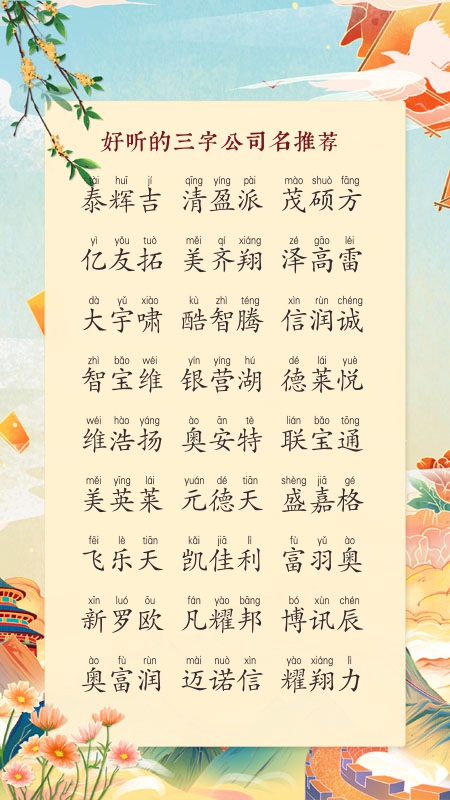 好听的三字公司名推荐
tài huī jí qīng yíng pài mào shuò fāng
泰辉吉 清盈派 茂硕方
yì yǒu tuò měi qí xiáng zé gāo léi
亿友拓 美齐翔 泽高雷
dà yǔ xiào kù zhì téng xìn rùn chéng
大宇啸 酷智腾 信润诚
zhì bǎo wéi yín yíng hú dé lái yuè
智宝维 银营湖 德莱悦
wéi hào yáng ào ān tè lián bǎo tōng
维浩扬 奥安特 联宝通
měi yīng lái yuán dé tiān shèng jiā gé
美英莱 元德天 盛嘉格
fēi lè tiān kǎi jiā lì fù yǔ ào
飞乐天 凯佳利 富羽奥
xīn luó ōu fán yào bāng bó xùn chén
新罗欧 凡耀邦 博讯辰
ào fù rùn mài nuò xìn yào xiáng lì
奥富润 迈诺信 耀翔力